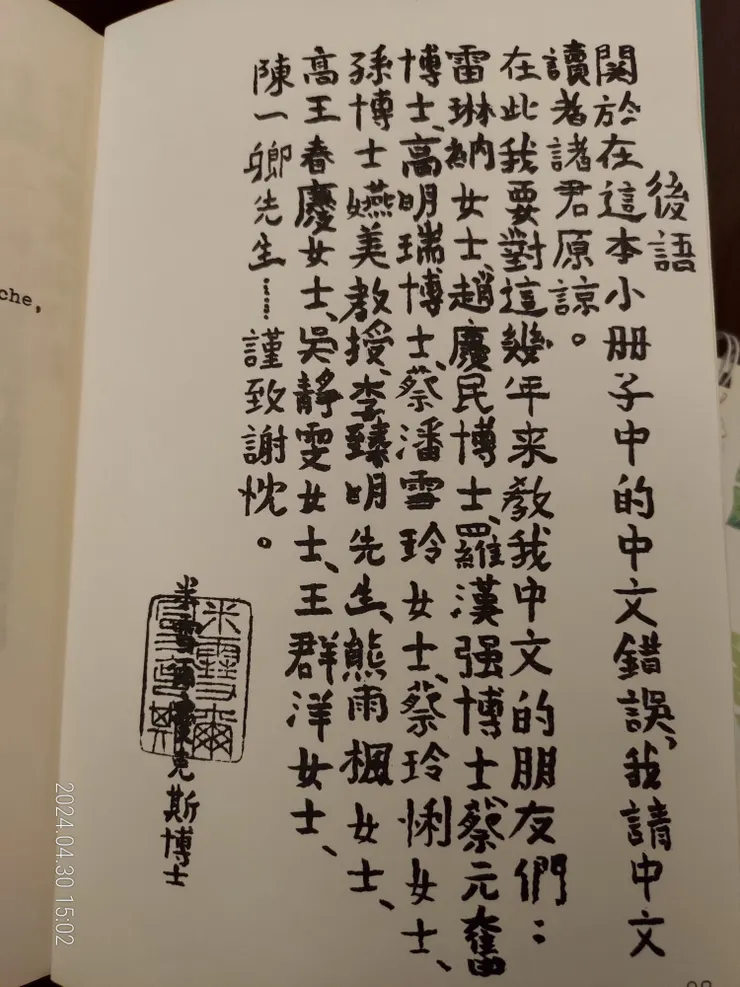 che,
後語
関於在這本小册子中的中文錯誤,我請中文
讀者諸君原諒。
在此我要對這幾年来教我中文的朋友們:
雷琳納女士、趙慶民博士、羅漢强博士蔡元奮
博士、高明瑞博士、蔡潘雪玲女士、蔡玲悧女士、
孫博士嬿美教授、李臻明先生、熊雨楓女士、
高王春慶女士、吳靜雯女士、王群洋女士、
陳一卿先生……謹致謝忱。
米雪爾克斯博士
2024.04.30 15:02